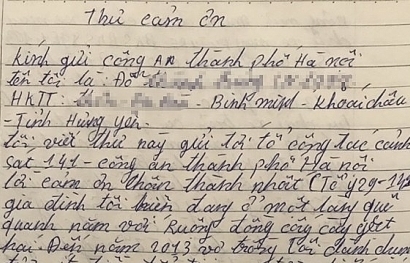 Thư cảm ơn
Kính gửi công AN thành phố Hà nội
tên tôi là Đỗ
HKTT - Bình minh - Khoái châu
- Tỉnh Hưng yên.
tôi viết thư này gửi tới tổ công tác cảnh
sát 141 - công an thành phố Hà nội
lời cảm ơn chân thành nhất (Tổ y29-141
gia đình tôi hiện đang ở một làng quê
quanh năm với Ruộng đồng cày cấy
Đến năm 2013 tôi dành dum